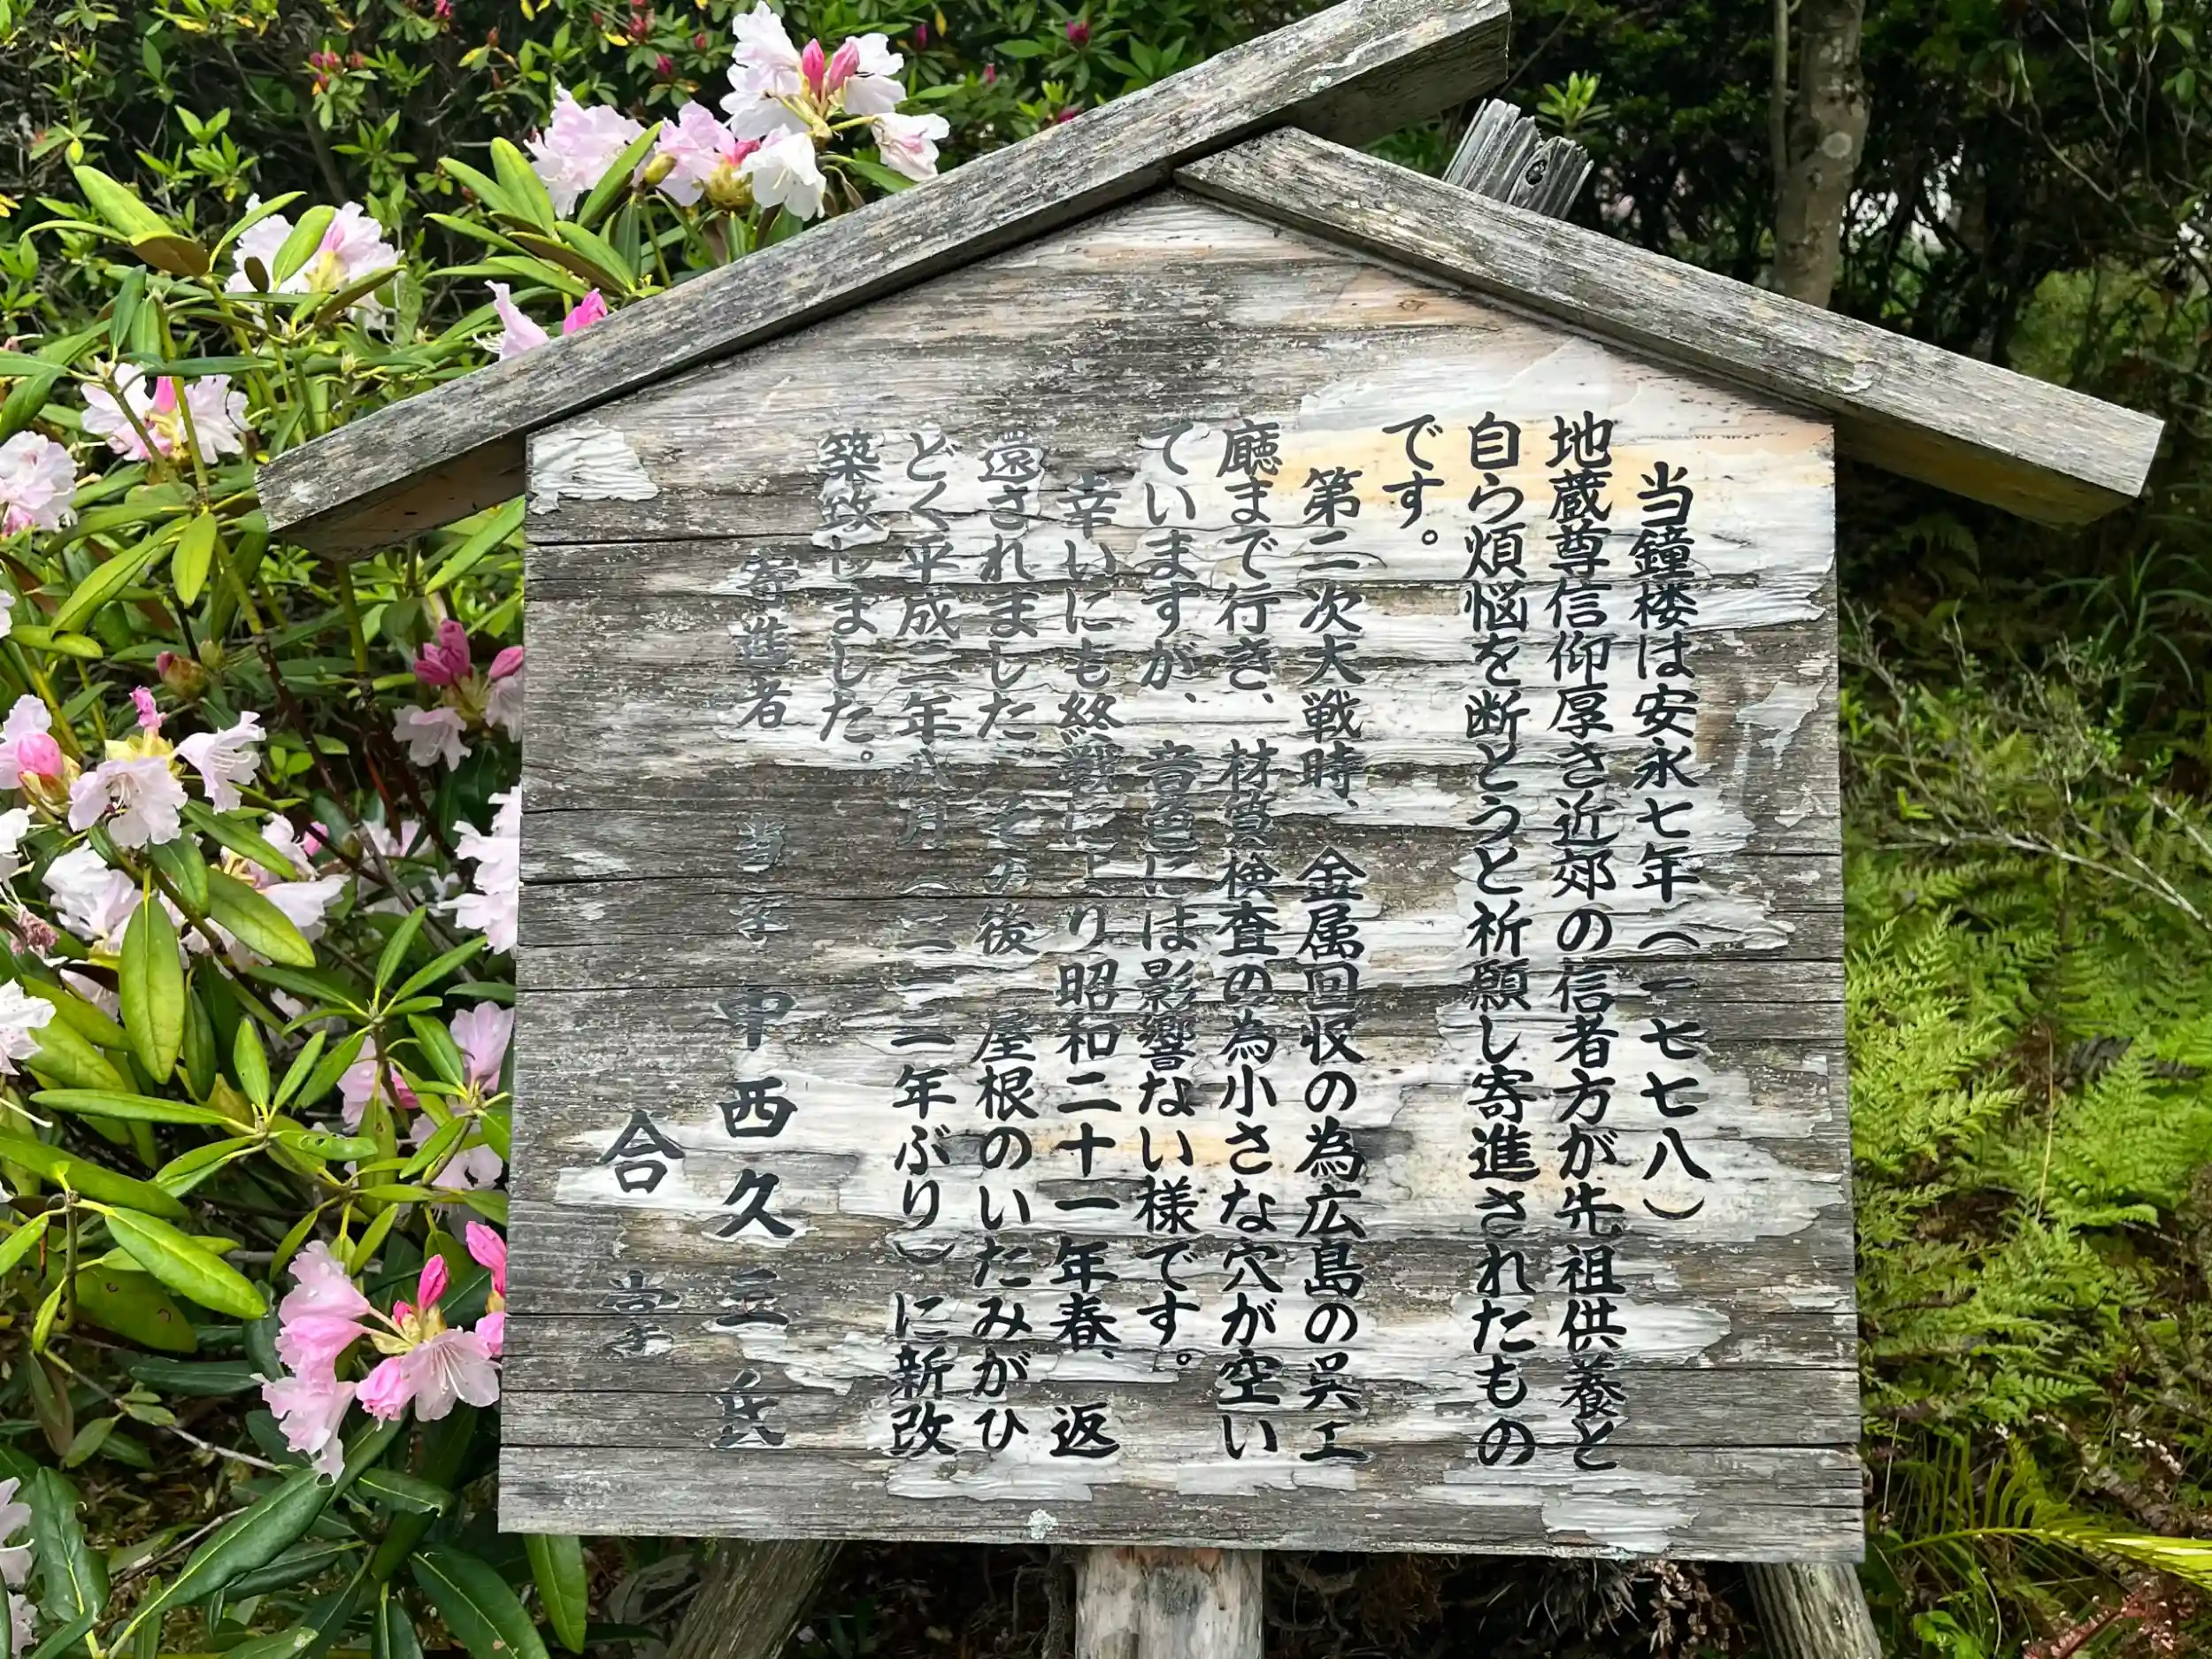 当鐘楼は安永七年(一七七八)
地蔵尊信仰厚き近郊の信者方が先祖供養と
自ら煩悩を断とうと祈願し寄進されたもの
です。
第二次大戦時、金属回収の為広島の呉工
廰まで行き、材質検査の為小さな穴が空い
ていますが、音色には影響ない様です。
幸いにも終戦により昭和二十一年春、返
還されました。その後 屋根のいたみがひ
どく平成二年八月(二一二年ぶり)に新改
築致しました。
寄進者 当寺 甲西久三氏
合掌